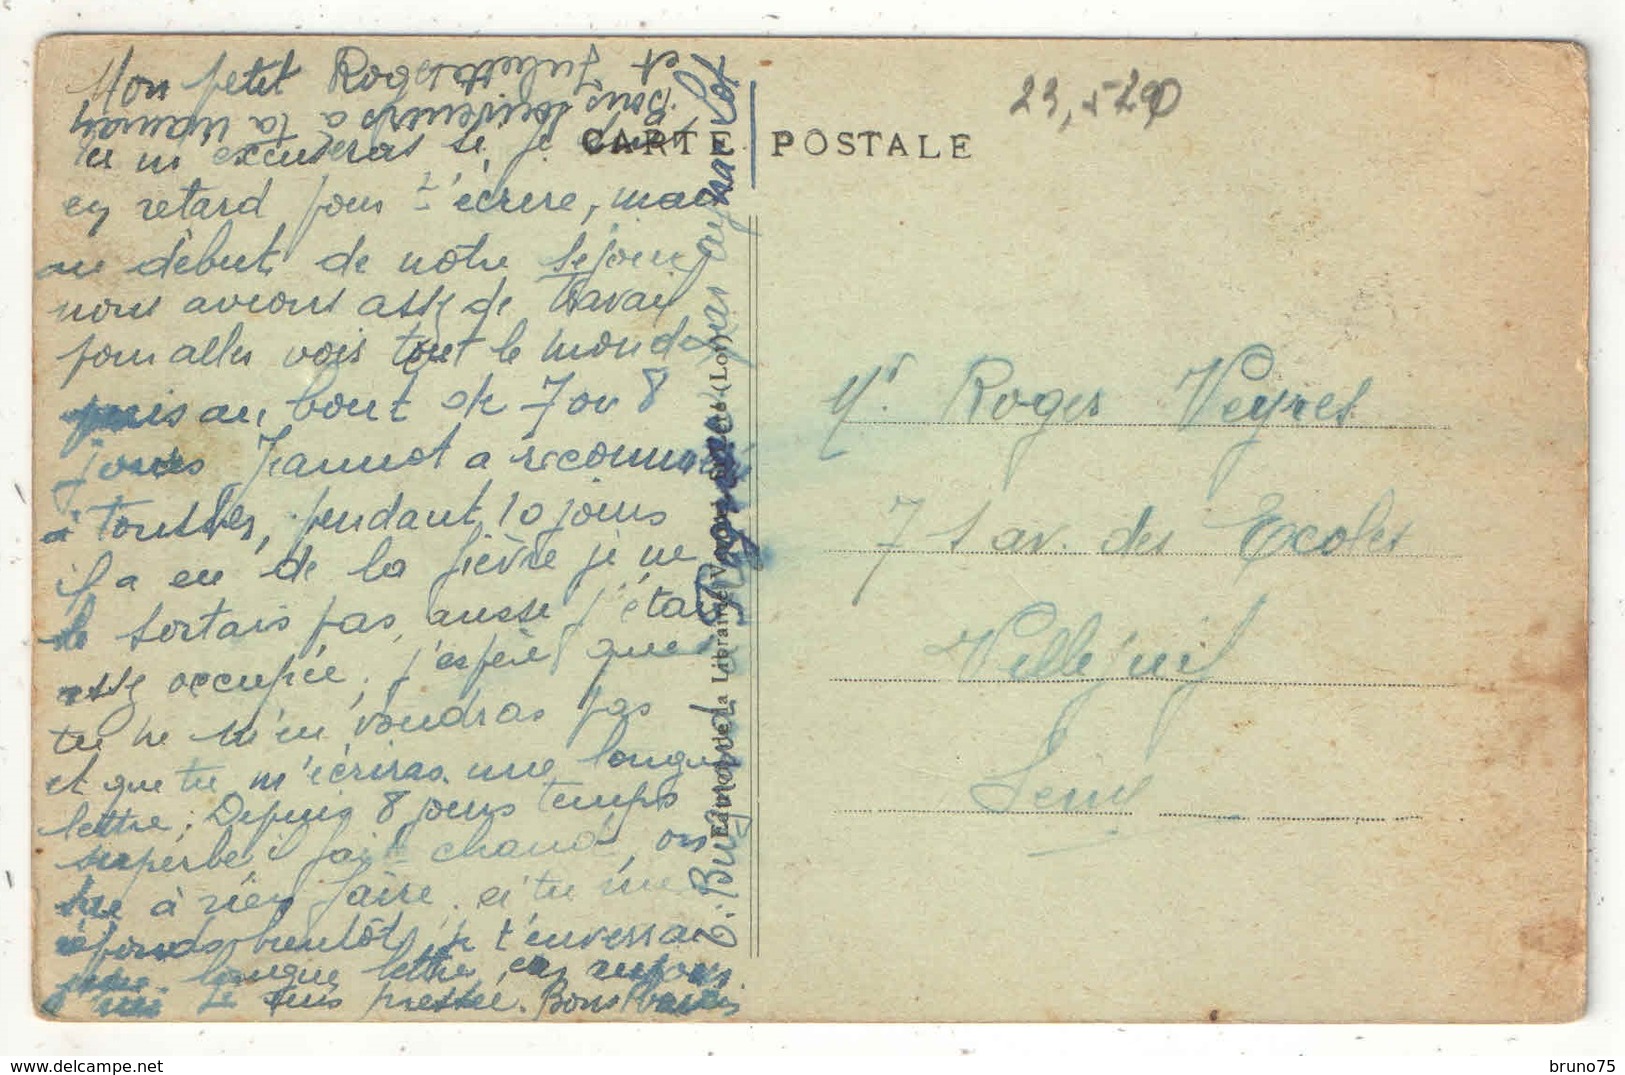 Mon petit Roger
Bons souvenirs à ta maman
et Juliette
tu m'excuseras si je suis
en retard pour t'écrire, mais
au début de notre séjour
nous avions assez de travail
pour aller vois tout le monde
puis au bout de 7 ou 8
jours Jeannot a recommencé
à tousser, pendant 10 jours
il a eu de la fièvre je ne
le sortais pas, aussi j'étais
assez occupée, j'espère que
tu ne m'en voudras pas
et que tu m'écriras une longue
lettre; Depuis 8 jours temps
superbe il fait chaud, on
ne à rien faire. si tu me
réponds bientôt, je t'enverrai
une longue lettre,
suis pressée. Bons baisers
CARTE POSTALE
23,5290
Edition de la Librairie
(Lot)
Mr. Roger Veyret
71 av. des Ecoles
Villejuif
Seine
bruno75